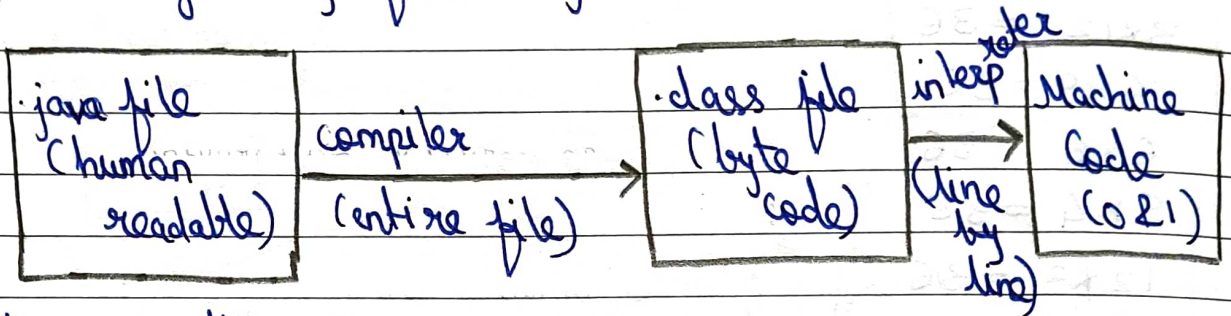 .java file
(human
readable)
compiler
(entire file)
.class file
(byte
code)
interpreter
(line
by
line)
Machine
Code
(0 & 1)